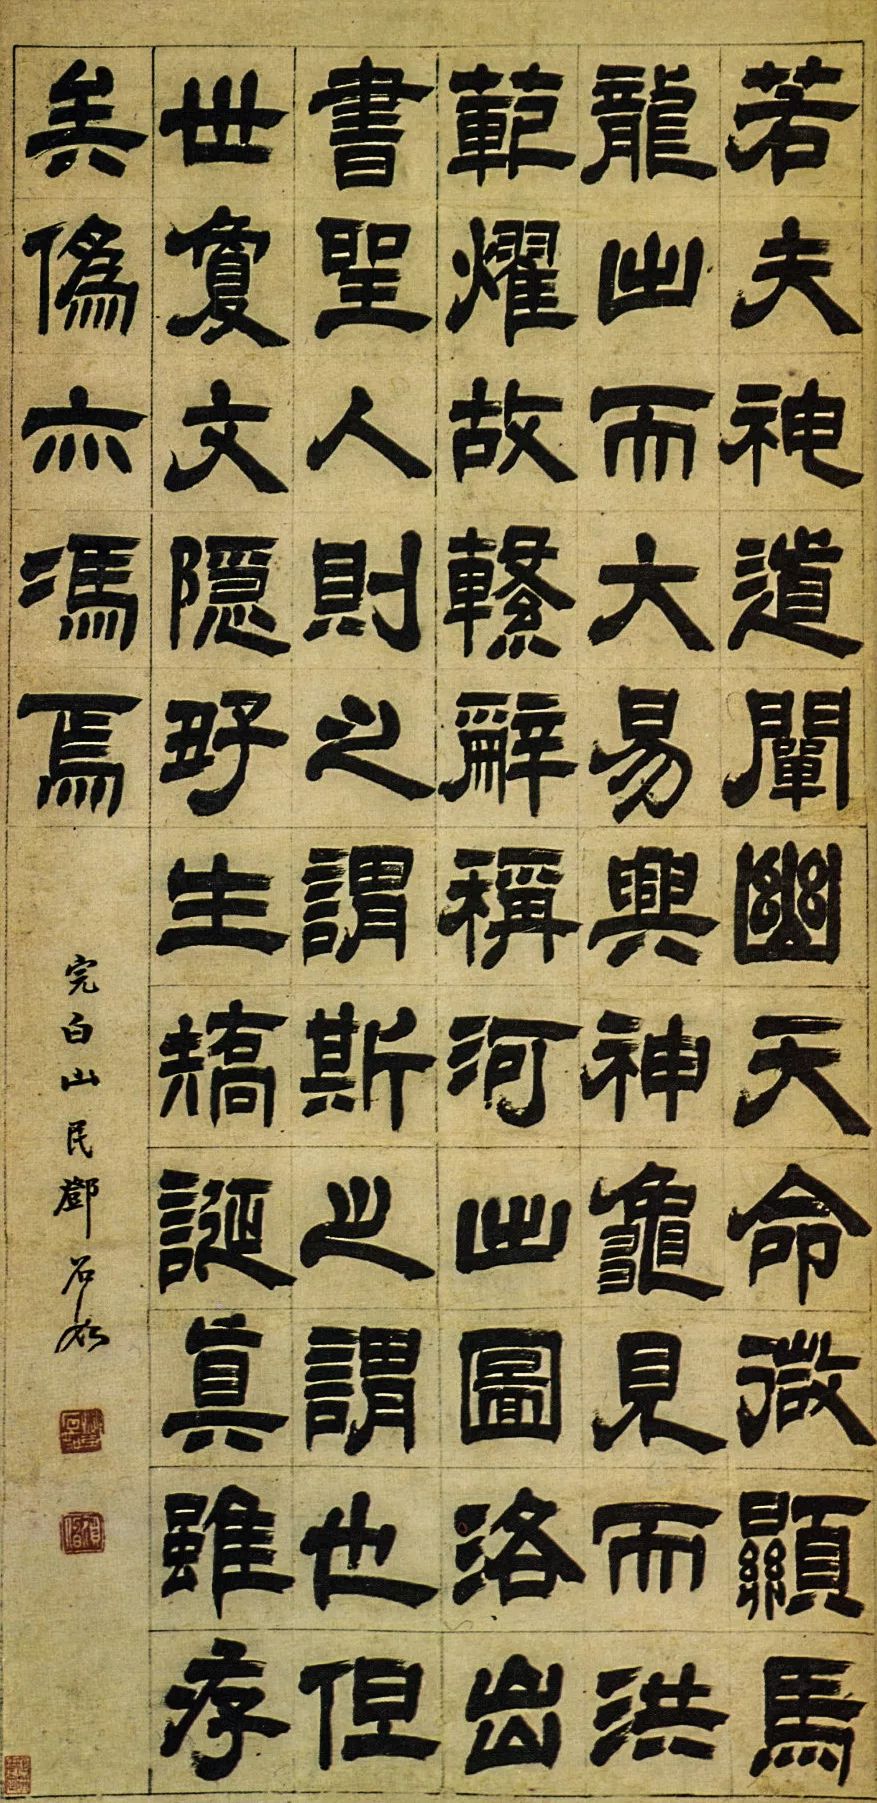 若夫神道闡幽天命微顯馬
龍出而大易興神龜見而洪
範燿故繫辭稱河出圖洛出
書聖人則之謂斯之謂也但
世夐文隱好生矯誕真雖存
矣偽亦馮焉
完白山民鄧石如